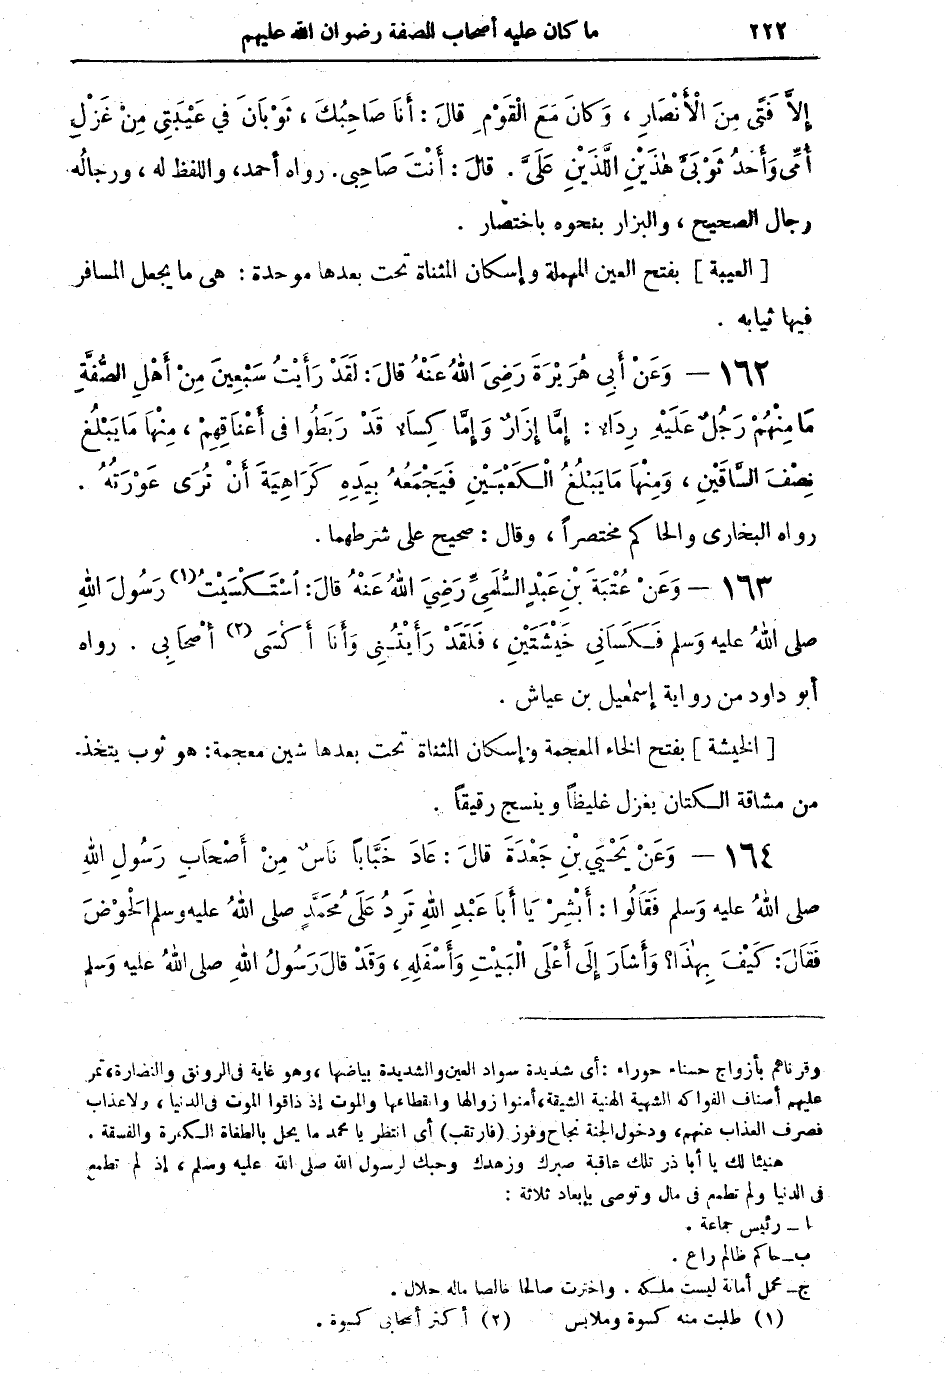 ٢٢٢ ما كان عليه أصحاب الصفة رضوان الله عليهم
إِلاَّ فَتًى مِنَ الْأَنْصَارِ ، وَكانَ مَعَ الْقَوْمِ قالَ : أَنَا صَاحِبُكَ ، ثَوْبَانَ فِي عَيْبَتِي مِنْ غَزْلِ
أُمِّى وَأَحَدُ ثَوْبَىَّ هٰذَيْنِ اللَّذَيْنِ عَلَىَّ . قالَ : أَنْتَ صَاحِبى. رواه أحمد، واللفظ له ، ورجالُه
رجال الصحيح ، والبزار بنحوه باختصار .
[ العيبة ] بفتح العين المهملة وإسكان المثناة تحت بعدها موحدة : هى ما يجعل المسافر
فيها ثيابه .
١٦٢ — وَعَنْ أَبِي هُرَيْرَةَ رَضِىَ اللهُ عَنْهُ قالَ : لَقَدْ رَأَيْتُ سَبْعِينَ مِنْ أَهْلِ الصُّفَّةِ
مَا مِنْهُمْ رَجُلٌ عَلَيْهِ رِدَاءٌ : إِمَّا إِزَارٌ وَإِمَّا كِسَاءٌ قَدْ رَبَطُوا فى أَعْنَاقِهِمْ ، مِنْهَا مَا يَبْلُغُ
نِصْفَ السَّاقَيْنِ ، وَمِنْهَا مَا يَبْلُغُ الْكَعْبَيْنِ فَيَجْمَعُهُ بِيَدِهِ كَرَاهِيَةَ أَنْ تُرَى عَوْرَتُهُ .
رواه البخارى والحاكم مختصراً ، وقال : صحيح على شرطهما .
١٦٣ — وَعَنْ عُتْبَةَ بْنِ عَبْدٍ السُّلَمِيِّ رَضِىَ اللهُ عَنْهُ قالَ: اسْتَكْسَيْتُ (١) رَسُولَ اللهِ
صلى اللهُ عليه وَسلم فَكَسَانِي خَيْشَتَيْنِ ، فَلَقَدْ رَأَيْتُنِى وَأَنَا أَكْسَى (٢) أَصْحَابِي . رواه
أبو داود من رواية إسمٰعيل بن عياش .
[ الخيشة ] بفتح الخاء المعجمة وإسكان المثناة تحت بعدها شين معجمة : هو ثوب يتخذ
من مشاقة الكتان يغزل غليظاً وينسج رقيقاً .
١٦٤ — وَعَنْ يَحْيَى بْنِ جَعْدَةَ قالَ : عَادَ خَبَّاباً نَاسٌ مِنْ أَصْحَابِ رَسُولِ اللهِ
صلى اللهُ عليه وَسلم فَقَالُوا : أَبْشِرْ يَا أَبَا عَبْدِ اللهِ تَرِدُ عَلَى مُحَمَّدٍ صلى اللهُ عليه وسلم الْحَوْضَ
فَقَالَ : كَيْفَ بِهٰذَا؟ وَأَشَارَ إِلَى أَعْلَى الْبَيْتِ وَأَسْفَلِهِ ، وَقَدْ قالَ رَسُولُ اللهِ صلى اللهُ عليه وَسلم
وقرناهم بأزواج حسناء حوراء : أى شديدة سواد العين والشديدة بياضها ، وهو غاية فى الرونق والنضارة، تمر
عليهم أصناف الفواكه الشهية الهنية الشيقة، أمنوا زوالها وانقطاعها والموت إذ ذاقوا الموت فى الدنيا ، ولا عذاب
فصرف العذاب عنهم، ودخول الجنة نجاح وفوز (فارتقب) أى انتظر يا محمد ما يحل بالطغاة الكفرة والفسقة .
هنيئا لك يا أبا ذر تلك عاقبة صبرك وزهدك وحبك لرسول الله صلى الله عليه وسلم ، إذ لم تطمع
فى الدنيا ولم تطمع فى مال وتوصى بإبعاد ثلاثة :
ا ــ رئيس جماعة .
ب ــ حاكم ظالم راع .
ج ــ محمل أمانة ليست ملكه . واخترت صالحا خالصا ماله حلال .
(١) طلبت منه كسوة وملابس (٢) أكثر أصحابى كسوة .